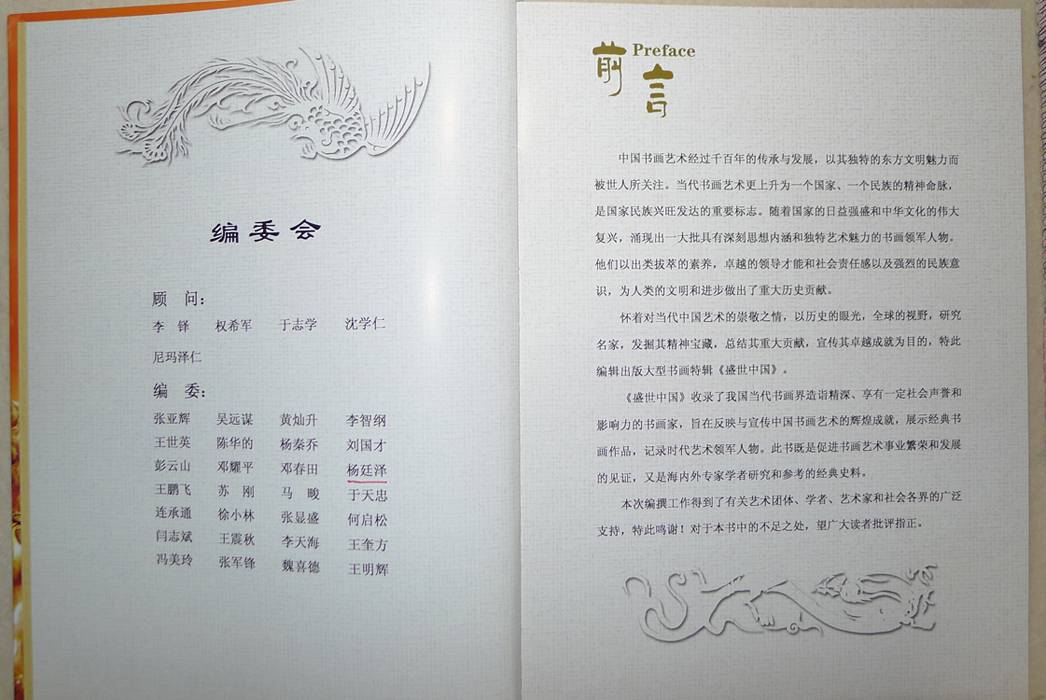 编委会
顾 问：
李 铎 权希军 于志学 沈学仁
尼玛泽仁
编 委：
张亚辉 吴远谋 黄灿升 李智纲
王世英 陈华的 杨秦乔 刘国才
彭云山 邓耀平 邓春田 杨廷泽
王鹏飞 苏 刚 马 畯 于天忠
连承通 徐小林 张显盛 何启松
闫志斌 王震秋 李天海 王奎方
冯美玲 张军锋 魏喜德 王明辉
前言 Preface
中国书画艺术经过千百年的传承与发展，以其独特的东方文明魅力而
被世人所关注。当代书画艺术更上升为一个国家、一个民族的精神命脉，
是国家民族兴旺发达的重要标志。随着国家的日益强盛和中华文化的伟大
复兴，涌现出一大批具有深刻思想内涵和独特艺术魅力的书画领军人物。
他们以出类拔萃的素养，卓越的领导才能和社会责任感以及强烈的民族意
识，为人类的文明和进步做出了重大历史贡献。
怀着对当代中国艺术的崇敬之情，以历史的眼光，全球的视野，研究
名家，发掘其精神宝藏，总结其重大贡献，宣传其卓越成就为目的，特此
编辑出版大型书画特辑《盛世中国》。
《盛世中国》收录了我国当代书画界造诣精深、享有一定社会声誉和
影响力的书画家，旨在反映与宣传中国书画艺术的辉煌成就，展示经典书
画作品，记录时代艺术领军人物。此书既是促进书画艺术事业繁荣和发展
的见证，又是海内外专家学者研究和参考的经典史料。
本次编撰工作得到了有关艺术团体、学者、艺术家和社会各界的广泛
支持，特此鸣谢！对于本书中的不足之处，望广大读者批评指正。